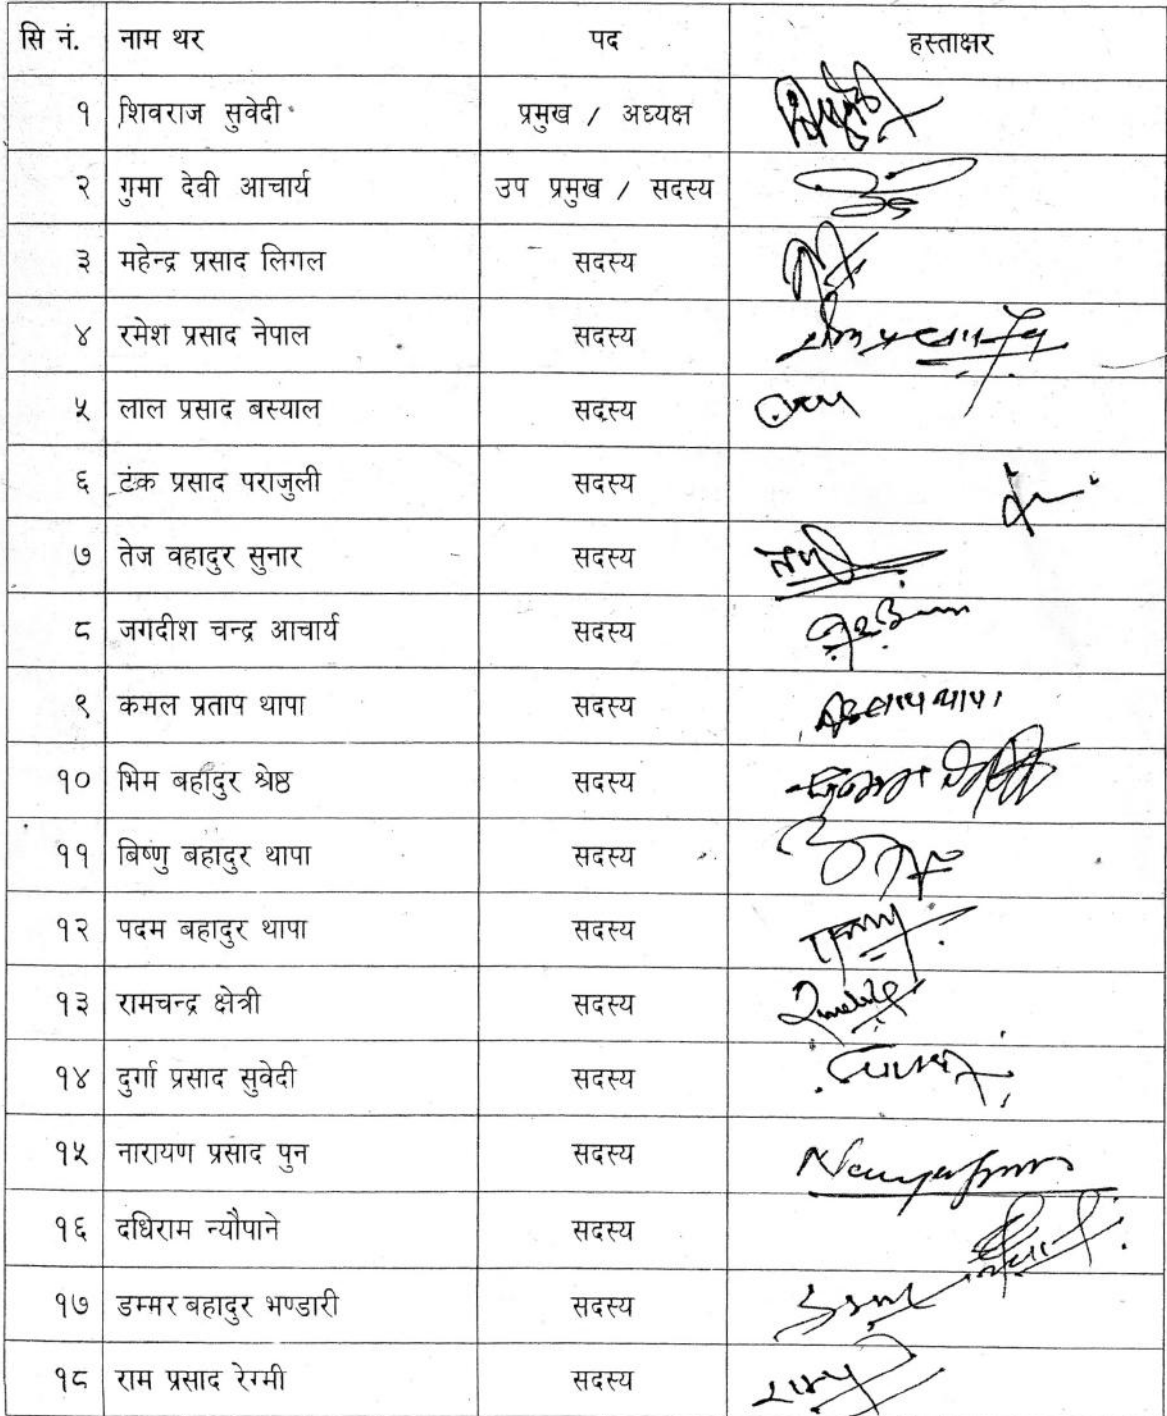 सि नं. नाम थर पद हस्ताक्षर
१ शिवराज सुवेदी प्रमुख / अध्यक्ष
२ गुमा देवी आचार्य उप प्रमुख / सदस्य
३ महेन्द्र प्रसाद लिगल सदस्य
४ रमेश प्रसाद नेपाल सदस्य
५ लाल प्रसाद बस्याल सदस्य
६ टंक प्रसाद पराजुली सदस्य
७ तेज वहादुर सुनार सदस्य
८ जगदीश चन्द्र आचार्य सदस्य
९ कमल प्रताप थापा सदस्य
१० भिम बहादुर श्रेष्ठ सदस्य
११ बिष्णु बहादुर थापा सदस्य
१२ पदम बहादुर थापा सदस्य
१३ रामचन्द्र क्षेत्री सदस्य
१४ दुर्गा प्रसाद सुवेदी सदस्य
१५ नारायण प्रसाद पुन सदस्य
१६ दधिराम न्यौपाने सदस्य
१७ डम्मर बहादुर भण्डारी सदस्य
१८ राम प्रसाद रेग्मी सदस्य